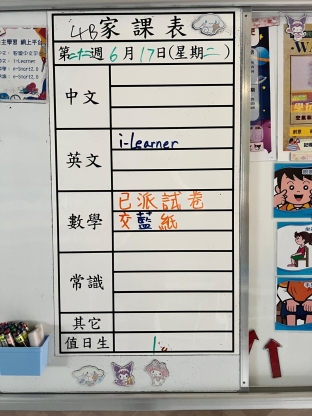 4B家課表
第二十二週6月17日(星期二)
中文
英文
i-Learner
數學
已派試卷
交藍紙
常識
其它
值日生
1